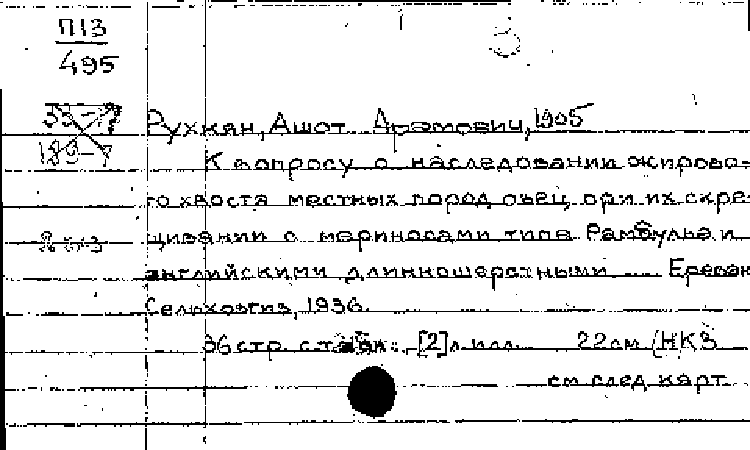 П13
495
33-7
189-7
Рухкян, Ашот Арамович, 1905
К вопросу о наследовании жирово-
го хвоста местных пород овец при их скре-
щивании с мериносами типа Рамбулье и
2 экз
английскими длинношерстными ... Ереван
Сельхозгиз, 1936.
36 стр. с табл.; [2] л. илл. 22 см (НКЗ
см след карт.